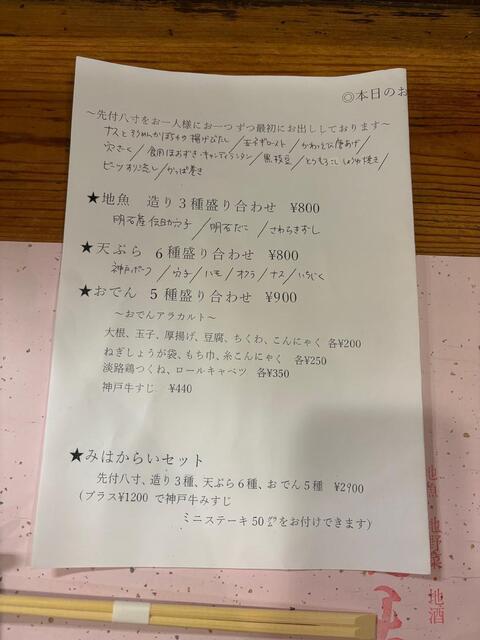 ◎本日のお
～先付八寸をお一人様にお一つずつ最初にお出ししております～
ナスとそうめんかぼちゃの揚げびたし／玉ネギロースト／かわえび唐あげ／
穴ざく／食用ほおずき・キャンディランタン／黒枝豆／とうもろこししょうゆ焼き／
ビーツすり流し／かっぱ巻き
★地魚 造り３種盛り合わせ ¥800
明石産伝助穴子／明石だこ／さわらきずし
★天ぷら ６種盛り合わせ ¥800
神戸ポーク／穴子／ハモ／オクラ／ナス／いちじく
★おでん ５種盛り合わせ ¥900
～おでんアラカルト～
大根、玉子、厚揚げ、豆腐、ちくわ、こんにゃく 各¥200
ねぎしょうが袋、もち巾、糸こんにゃく 各¥250
淡路鶏つくね、ロールキャベツ 各¥350
神戸牛すじ ¥440
★みはからいセット
先付八寸、造り３種、天ぷら６種、おでん５種 ¥2900
(プラス¥1200 で神戸牛みすじ
ミニステーキ 50㌘をお付けできます)
地魚・地野菜
地酒